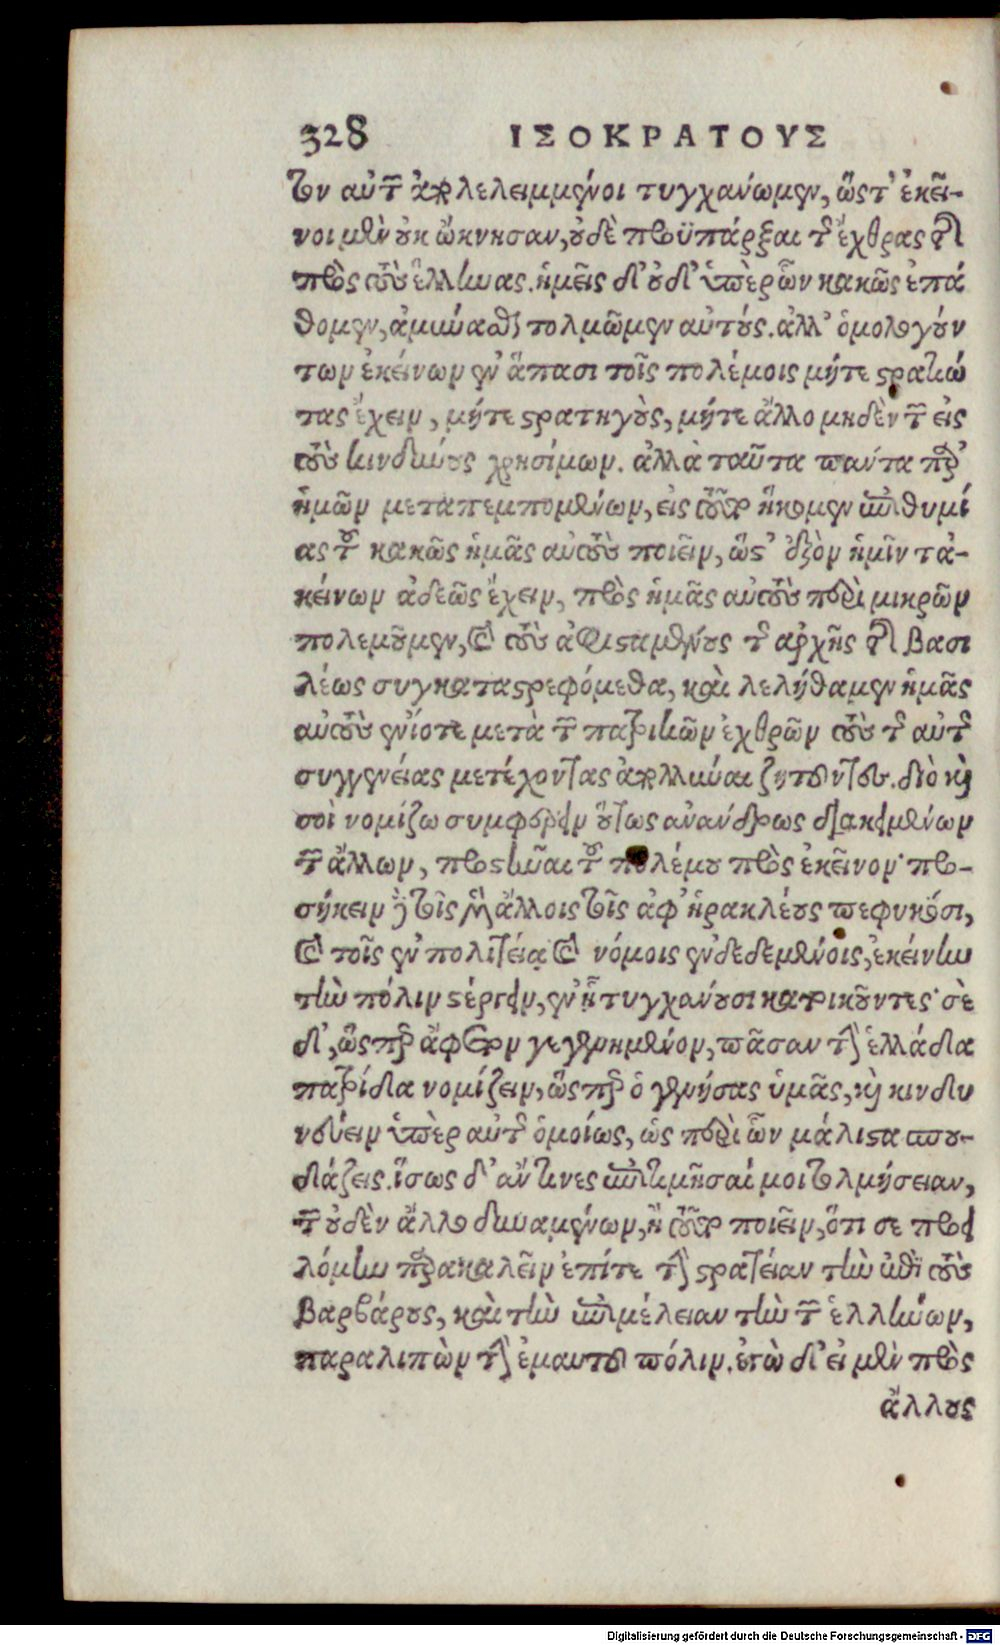 328 ΙΣΟΚΡΑΤΟΥΣ
τον αὐτῶν ἀπολελειμμένοι τυγχάνωμεν, ὥστ' ἐκεῖ-
νοι μὲν οὐκ ὤκνησαν, οὐδὲ προϋπάρξαι τῆς ἔχθρας τῆς
πρὸς τοὺς ἕλληνας. ἡμεῖς δ' οὐδ' ὑπὲρ ὧν κακῶς ἐπά
θομεν, ἀμύνασθαι τολμῶμεν αὐτούς. ἀλλ' ὁμολογούν
των ἐκείνων ἐν ἅπασι τοῖς πολέμοις μήτε στρατιώ
τας ἔχειν, μήτε στρατηγοὺς, μήτε ἄλλο μηδὲν τῶν εἰς
τοὺς κινδύνους χρησίμων. ἀλλὰ ταῦτα πάντα παρ'
ἡμῶν μεταπεμπομένων, εἰς τοῦτο ἥκομεν ἐπιθυμί
ας τοῦ κακῶς ἡμᾶς αὐτοὺς ποιεῖν, ὥστ' ἐξὸν ἡμῖν τἀ-
κείνων ἀδεῶς ἔχειν, πρὸς ἡμᾶς αὐτοὺς περὶ μικρῶν
πολεμοῦμεν, καὶ τοὺς ἀφισταμένους τῆς ἀρχῆς τῆς βασι
λέως συγκαταστρεφόμεθα, καὶ λελήθαμεν ἡμᾶς
αὐτοὺς ἐνίοτε μετὰ τῶν πατρικῶν ἐχθρῶν τοὺς τῆς αὐτῆς
συγγενείας μετέχοντας ἀπολλύναι ζητοῦντες. διὸ καὶ
σοὶ νομίζω συμφέρειν οὕτως ἀνάνδρως διακειμένων
τῶν ἄλλων, προστῆναι τοῦ πολέμου πρὸς ἐκεῖνον· προ-
σήκειν δὲ τοῖς μὲν ἄλλοις τοῖς ἀφ' ἡρακλέους πεφυκόσι,
καὶ τοῖς ἐν πολιτείᾳ καὶ νόμοις ἐνδεδεμένοις, ἐκείνην
τὴν πόλιν στέργειν, ἐν ᾗ τυγχάνουσι κατοικοῦντες· σὲ
δ', ὥσπερ ἄφετον γεγενημένον, πᾶσαν τὴν ἑλλάδα
πατρίδα νομίζειν, ὥσπερ ὁ γεννήσας ὑμᾶς, καὶ κινδυ
νεύειν ὑπὲρ αὐτῆς ὁμοίως, ὡς περὶ ὧν μάλιστα σπου-
δάζεις. ἴσως δ' ἄν τινες ἐπιτιμῆσαί μοι τολμήσειαν,
τῶν οὐδὲν ἄλλο δυναμένων, ἢ τοῦτο ποιεῖν, ὅτι σε προει
λόμην παρακαλεῖν ἐπί τε τὴν στρατείαν τὴν ἐπὶ τοὺς
βαρβάρους, καὶ τὴν ἐπιμέλειαν τὴν τῶν ἑλλήνων,
παραλιπὼν τὴν ἐμαυτοῦ πόλιν. ἐγὼ δ' εἰ μὲν πρὸς
ἄλλους
Digitalisierung gefördert durch die Deutsche Forschungsgemeinschaft - DFG